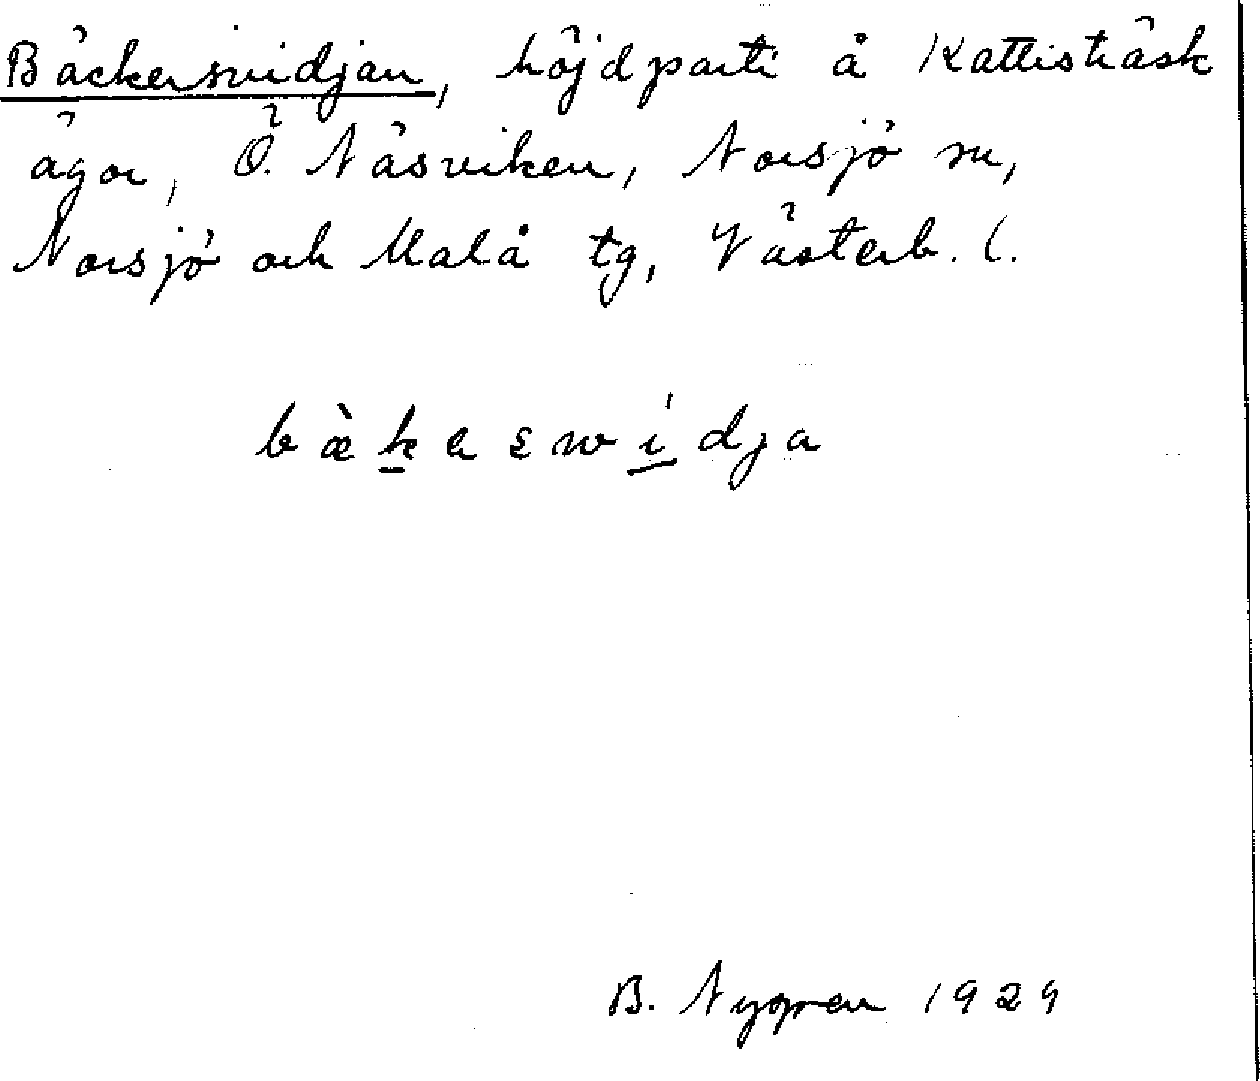 Bäckersvidjan, höjdparti å Kattisträsk
ägor, Ö. Näsviken, Norsjö sn,
Norsjö och Malå tg, Västerb. l.
bæ̀ḵerswídja
B. Nygren 1929